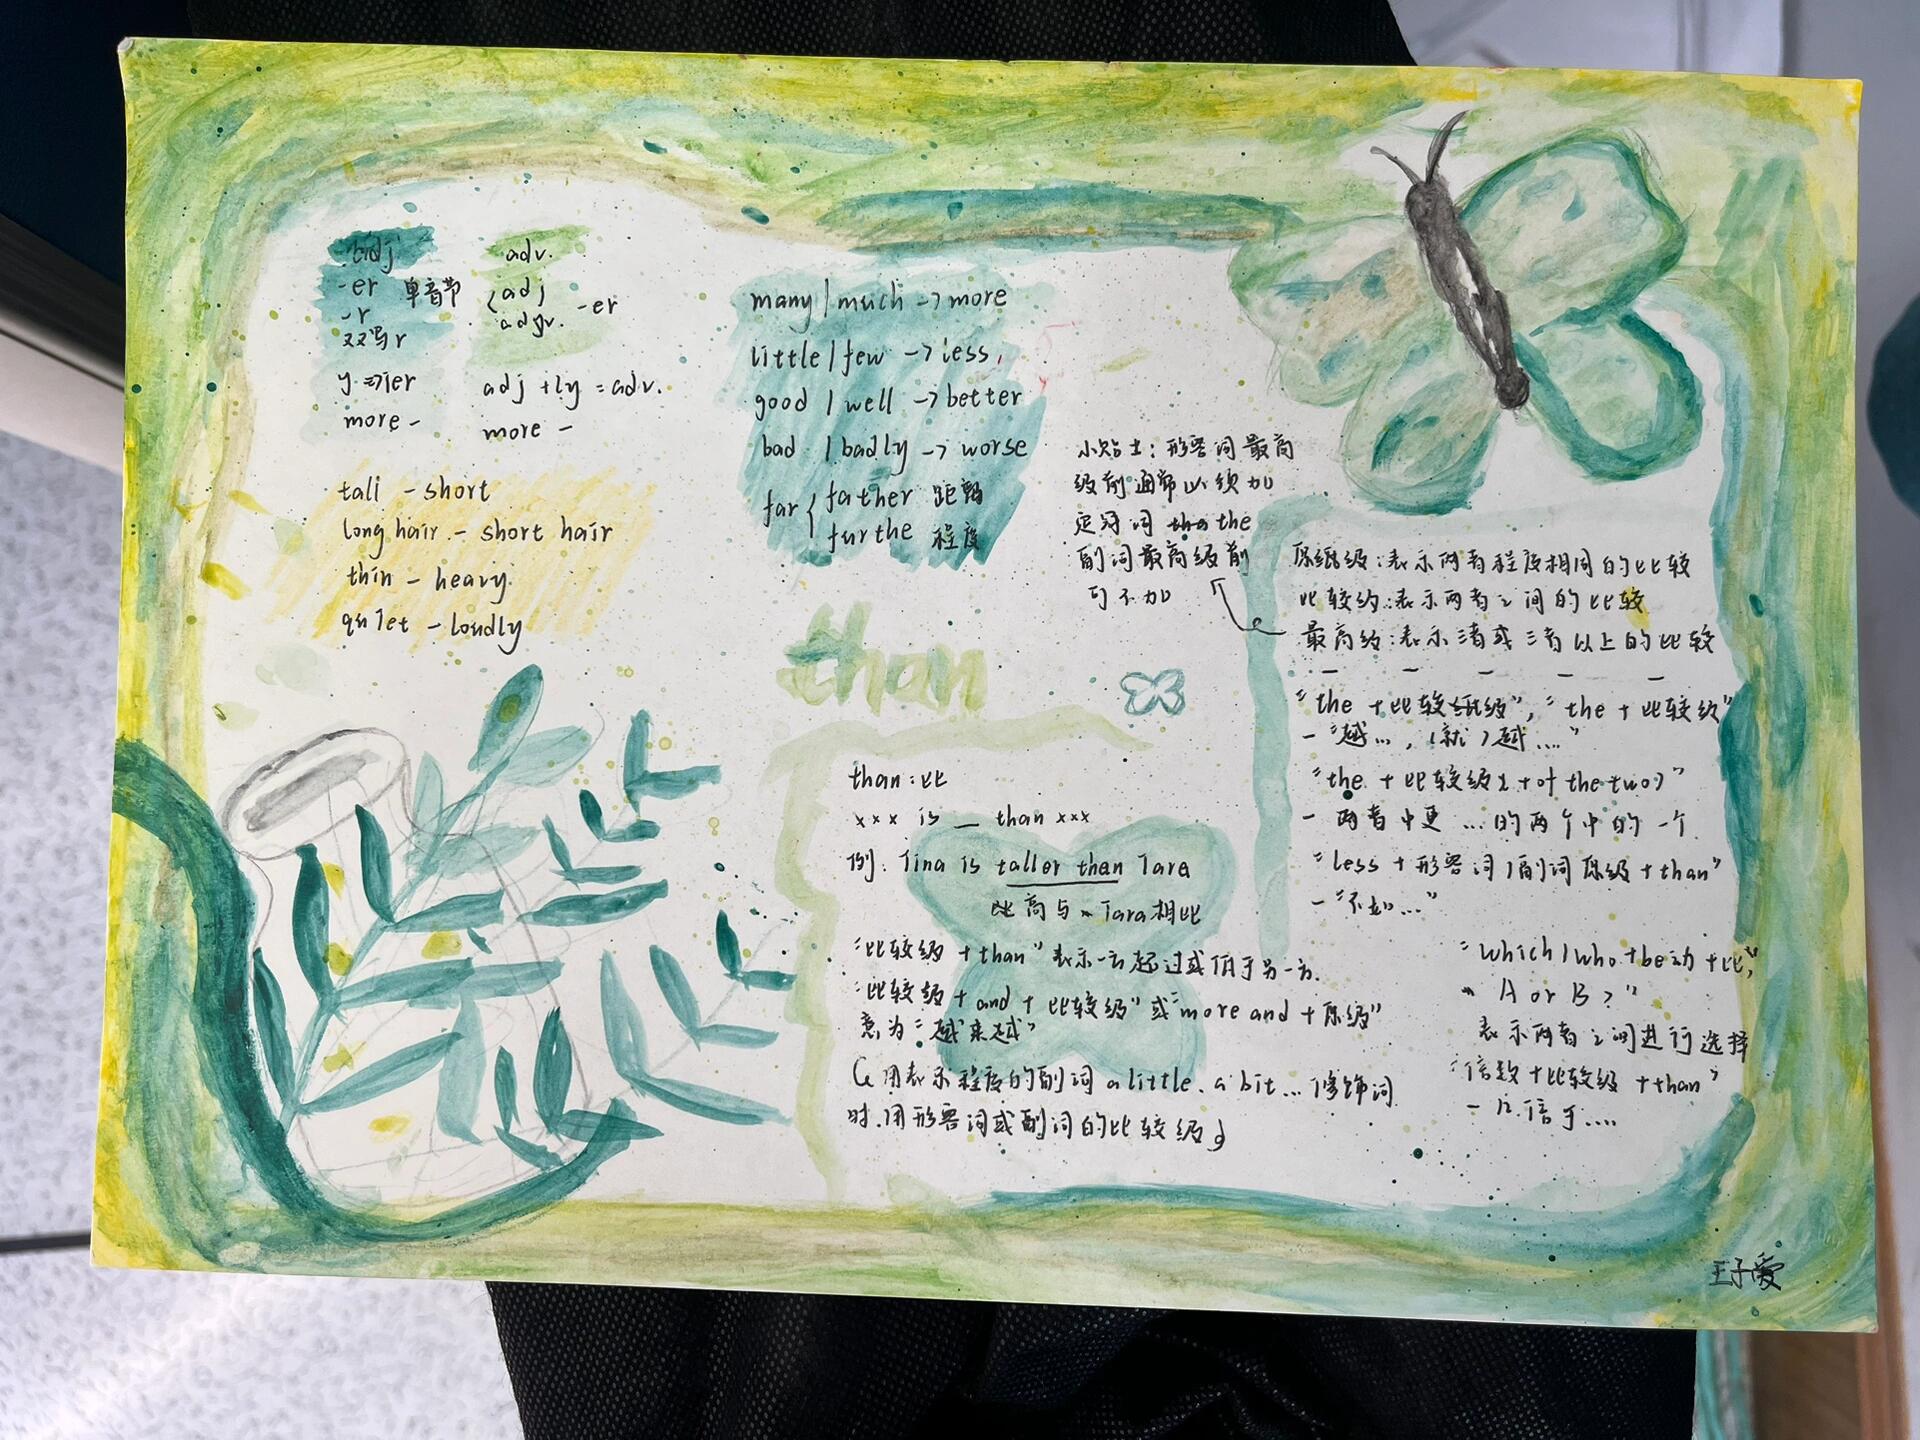 adj
-er 单音节
-r
双写r
y⇒ier
more-
adv.
{adj
adv. -er
adj +ly = adv.
more -
tall - short
long hair - short hair
thin - heavy
quiet - loudly
many / much -> more
little / few -> less
good / well -> better
bad / badly -> worse
far { father 距离
furthe 程度
小贴士：形容词最高
级前通常必须加
定冠词 the
副词最高级前
可不加
than
than：比
xxx is __ than xxx
例：Tina is taller then Tara
比高与 Tara相比
“比较级 + than” 表示一方超过或低于另一方.
“比较级 + and + 比较级” 或 “more and + 原级”
意为 “越来越”
(用表示程度的副词 a little、a bit... 修饰词
时.用形容词或副词的比较级)
原级：表示两者程度相同的比较
比较级：表示两者之间的比较
最高级：表示三者或三者以上的比较
“the + 比较级”, “the + 比较级”
- “越..., (就) 越....”
“the + 比较级 + of the two)”
- 两者中更 ...的两个中的一个
“less + 形容词/副词原级 + than”
- “不如...”
“which / who + be动 + 比,
A or B ?”
表示两者之间进行选择
“倍数 + 比较级 + than”
- 几倍于....
王子爱